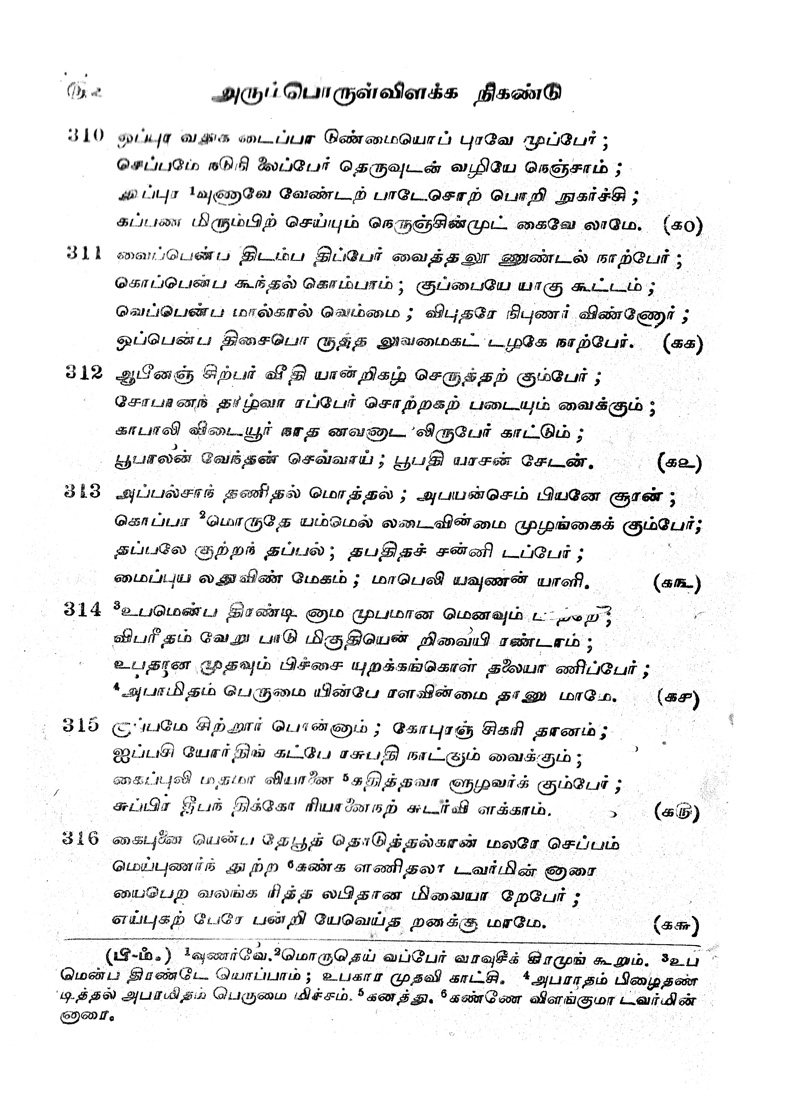 ௫௨ அரும்பொருள்விளக்க நிகண்டு
310 ஒப்புர வதுக டைப்பா டுண்மையொப் புரவே முப்பேர் ;
செப்பமே நடுநி லைப்பேர் தெருவுடன் வழியே நெஞ்சாம் ;
துப்புர ¹வுணாவே வேண்டற் பாடேசொற் பொறி நுகர்ச்சி ;
கப்பண மிரும்பிற் செய்யும் நெருஞ்சின்முட் கைவே லாமே. (௧௦)
311 வைப்பென்ப திடம்ப திப்பேர் வைத்தலூ ணுண்டல் நாற்பேர் ;
கொப்பென்ப கூந்தல் கொம்பாம் ; குப்பையே யாகு கூட்டம் ;
வெப்பென்ப மால்கால் வெம்மை ; விபுதரே நிபுணர் விண்ணோர் ;
ஒப்பென்ப திசைபொ ருத்த லுவமைகட் டழகே நாற்பேர். (௧௧)
312 ஆபீனஞ் சிற்பர் வீதி யான்றிகழ் செருத்தற் கும்பேர் ;
சோபானந் தாழ்வா ரப்பேர் சொற்றகற் படையும் வைக்கும் ;
காபாலி விடையூர் நாத னவனுட விருபேர் காட்டும் ;
பூபாலன் வேந்தன் செவ்வாய் ; பூபதி யாசன் சேடன். (௧௨)
313 அப்பல்சாந் தணிதல் மொத்தல் ; அபயன்செம் பியனே சூரன் ;
கொப்பா ²மொருதே யம்மெல் லடைவின்மை முழங்கைக் கும்பேர்;
தப்பலே குற்றந் தப்பல் ; தபதிதச் சன்னி டப்பேர் ;
மைப்புய லதுவிண் மேகம் ; மாபெலி யவுணன் யாளி. (௧௩)
314 ³உபமென்ப திரண்டி னாம முபமான மெனவும்
விபரீதம் வேறு பாடு மிகுதியென் றிவையி ரண்டாம் ;
உபதான முதவும் பிச்சை யுறக்கங்கொள் தலையா ணிப்பேர் ;
⁴அபாமிதம் பெருமை யின்பே ரளவின்மை தாணு மாமே. (௧௪)
315 ரூப்பமே சிற்றூர் பொன்னும் ; கோபுரஞ் சிகரி தானம் ;
ஐப்பசி யோர்திங் கட்பே ரசுபதி நாட்கும் வைக்கும் ;
கைப்புலி மதமா வியானை ⁵கதித்தவா ளூழவர்க் கும்பேர் ;
சுப்பிர தீபந் திக்கோ ரியானைநற் சுடர்வி ளக்காம். (௧௫)
316 கைபுனை யென்ப தேபூத் தொடுத்தல்கான் மலரே செப்பம்
மெய்புணர்ந் துற்ற ⁶கண்க ளணிதலா டவர்மின் னாரை
யைபெற வலங்க ரித்த லபிதான மிவையா றேபேர் ;
எய்புகற் பேரே பன்றி யேவெய்த றனக்கு மாமே. (௧௬)
(பி-ம்.) ¹வுணர்வே. ²மொருதெய் வப்பேர் வரவுசீக் கிரமுங் கூறும். ³உப
மென்ப திரண்டே யொப்பாம் ; உபகார முதவி காட்சி. ⁴அபராதம் பிழைதண்
டித்தல் அபாயிதம் பெருமை மிச்சம். ⁵கனத்து. ⁶கண்ணே விளங்குமா டவர்மின்
னாரை.